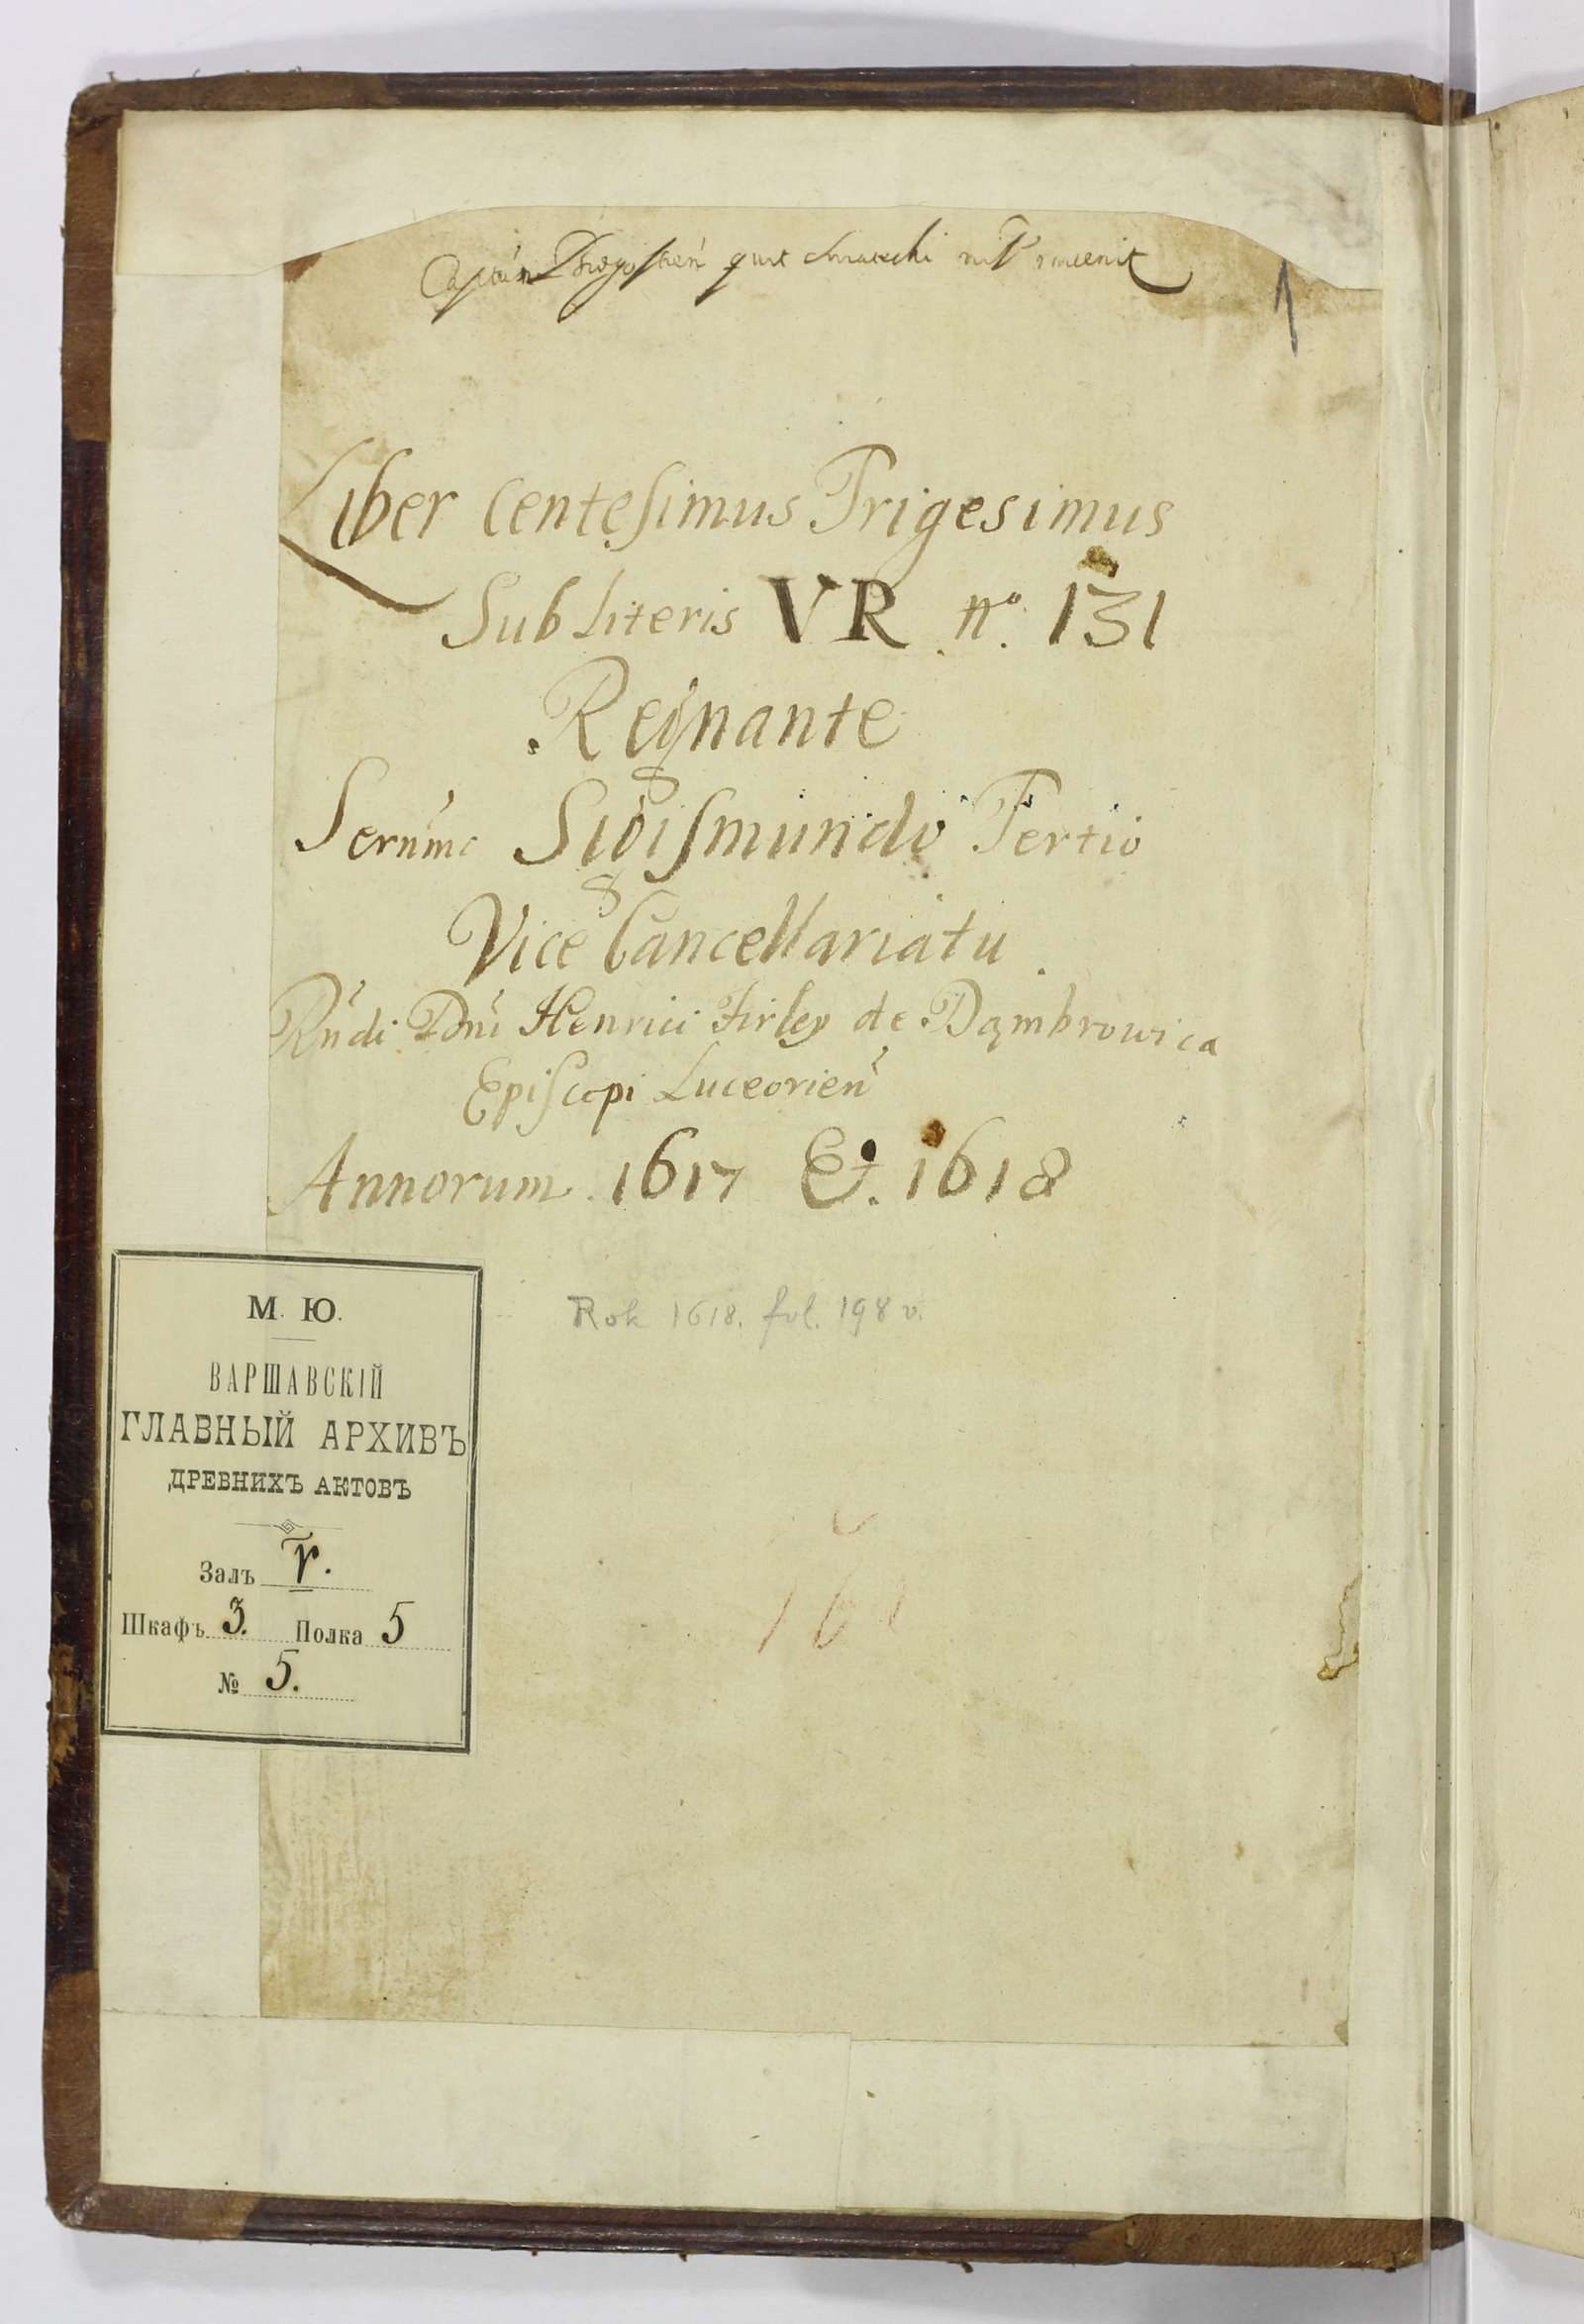 1
Liber Centesimus Trigesimus
Sub Literis VR nº. 131
Regnante
Serńmo Sigismundo Tertio
Vice Cancellariatu
Rńdi Dńi Henrici Firley de Dąmbrowica
Episcopi Luceorień
Annorum 1617 Et. 1618
Rok 1618. fol. 198 v.
М. Ю.
ВАРШАВСКІЙ
ГЛАВНЫЙ АРХИВЪ
ДРЕВНИХЪ АКТОВЪ
Залъ
Шкафъ 3. Полка 5
№ 5.